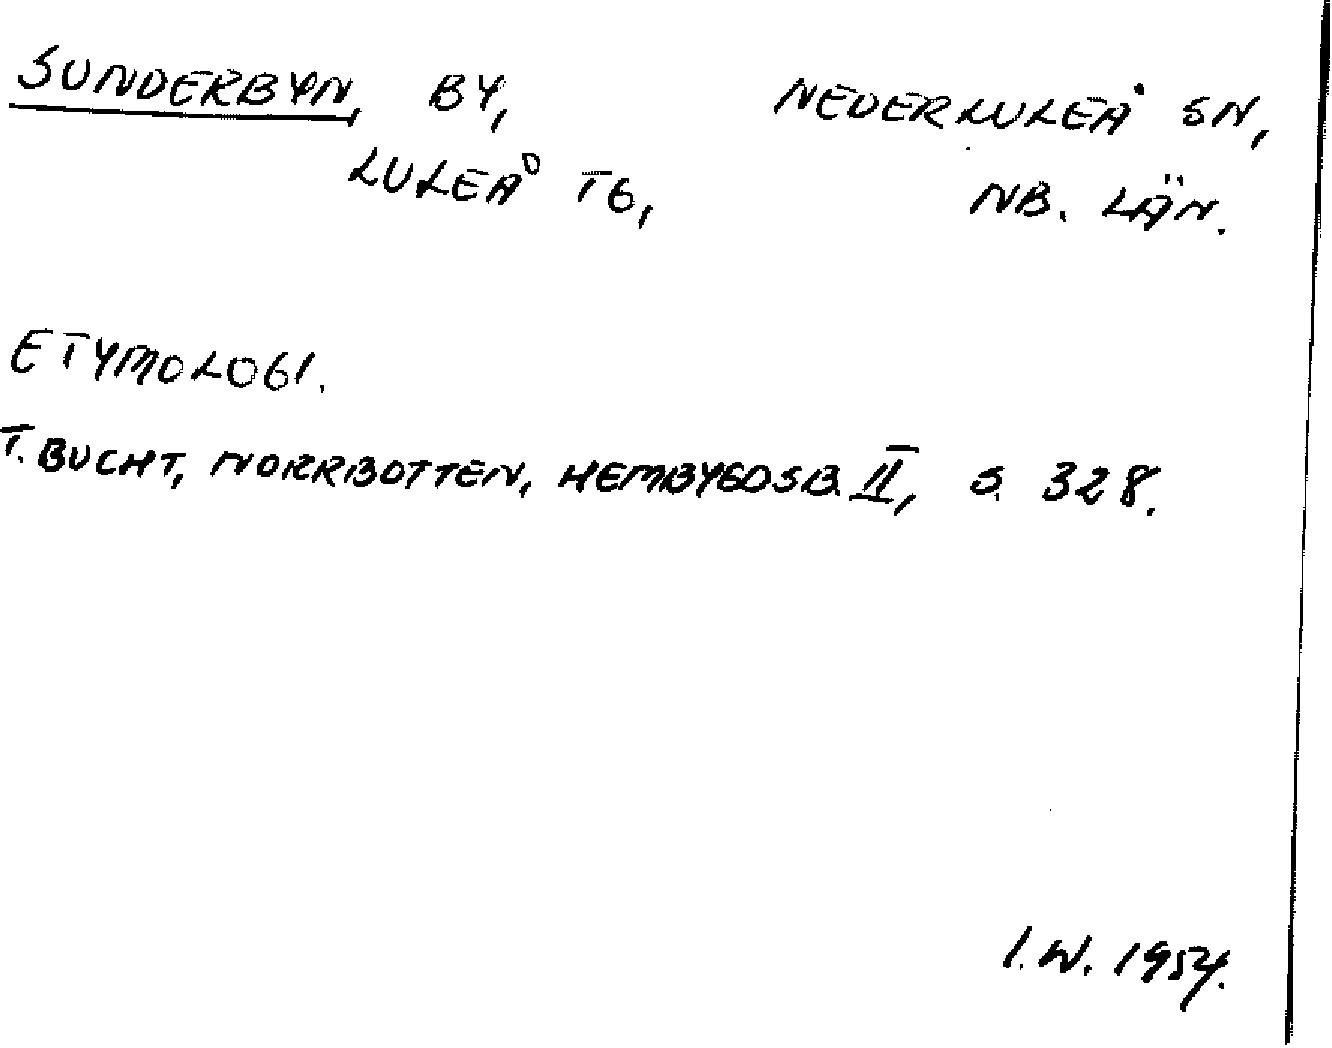 SUNDERBYN, BY, NEDERLULEÅ SN,
LULEÅ TG, NB. LÄN.
ETYMOLOGI.
T. BUCHT, NORRBOTTEN, HEMBYGDSB. II, S. 328.
I.W. 1954.